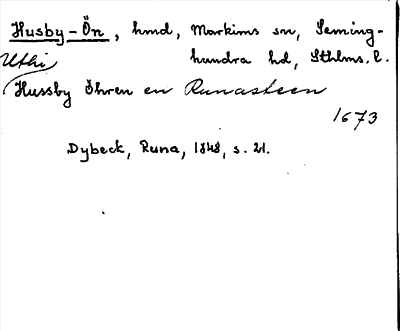 Husby-Ön, hmd, Markims sn, Seming-
hundra hd, Sthlms. l.
Uthi
Hussby Öhren en Runasteen
1673
Dybeck, Runa, 1848, s. 21.